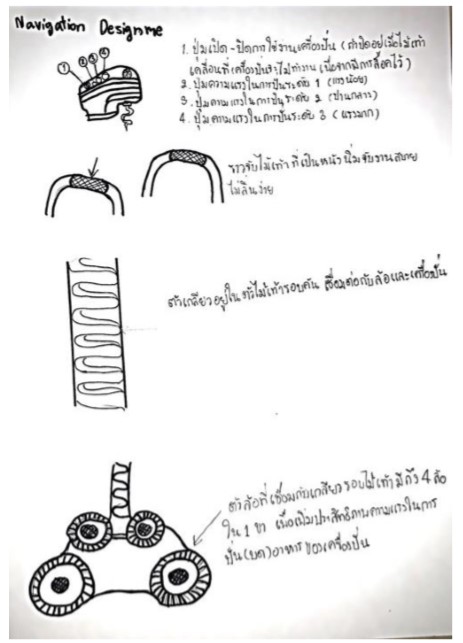 Navigation Designme
1 2 3 4
1. ปุ่มเปิด-ปิดการใช้งานเครื่องปั่น (ถ้าปิดอยู่เมื่อไม้เท้า
เคลื่อนที่เครื่องปั่นจะไม่ทำงาน (เนื่องจากมีการล็อคไว้)
2. ปุ่มความแรงในการปั่นระดับ 1 (แรงน้อย)
3. ปุ่มความแรงในการปั่นระดับ 2 (ปานกลาง)
4. ปุ่มความแรงในการปั่นระดับ 3 (แรงมาก)
ราวจับไม้เท้า ที่เป็นหนังนิ่มจับงานสบาย
ไม่ลื่นง่าย
ตัวเกลียวอยู่ในตัวไม้เท้ารอบคัน เชื่อมต่อกับล้อและเครื่องปั่น
ตัวล้อที่เชื่อมกับเกลียวรอบไม้เท้ามีถึง 4 ล้อ
ใน 1 ขา เพื่อเพิ่มประสิทธิภาพความแรงในการ
ปั่น(บด)อาหารของเครื่องปั่น